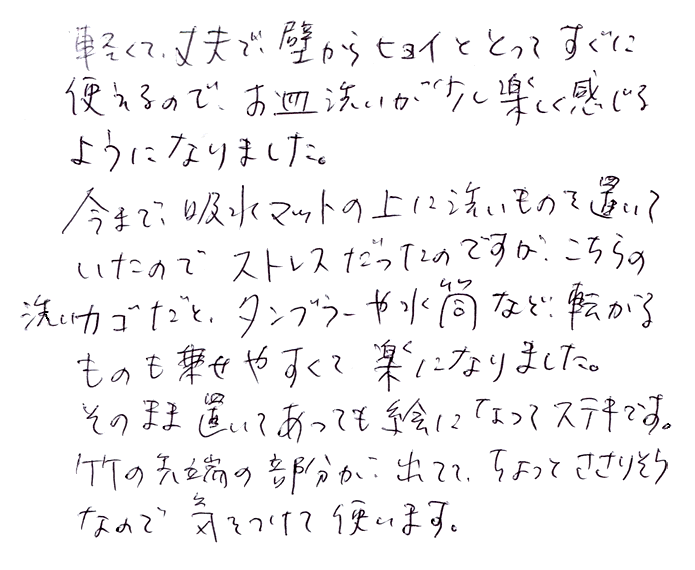 軽くて、丈夫で、壁からヒョイととってすぐに
使えるので、お皿洗いが少し楽しく感じる
ようになりました。
今まで、吸水マットの上に洗いものを置いて
いたのでストレスだったのですが、こちらの
洗いカゴだと、タンブラーや水筒など、転がる
ものも乗せやすくて楽になりました。
そのまま置いてあっても絵になってステキです。
竹の先端の部分が、出てて、ちょっとささりそう
なので気をつけて使います。